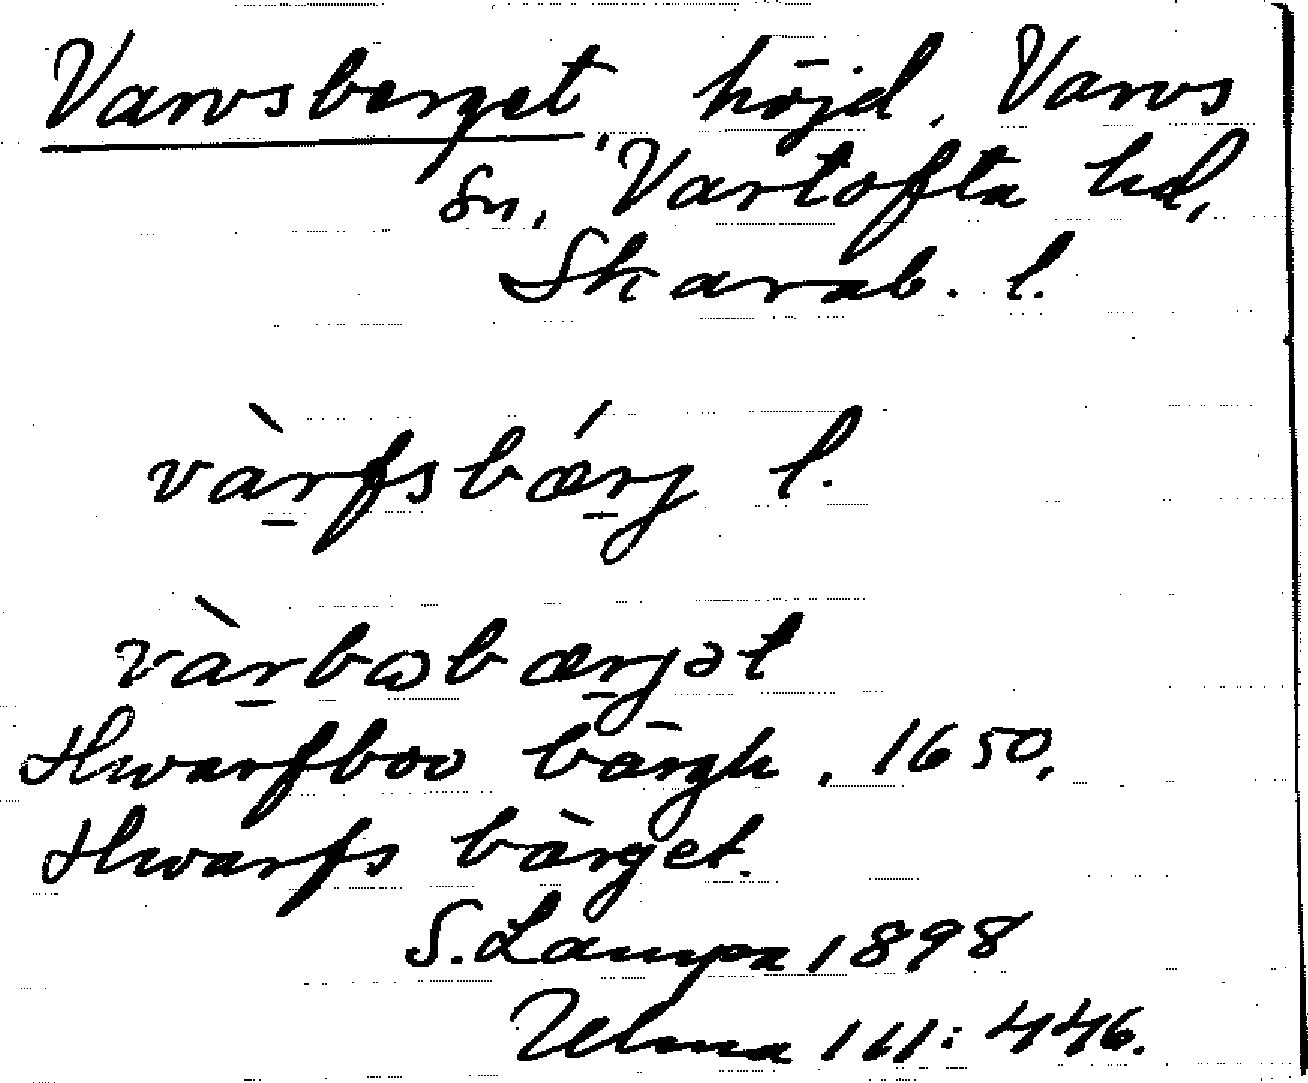 Varvsberget, höjd. Varvs
sn, Vartofta hd,
Skarab. l.
và̱rfsbǽṟj l.
và̱rbωbæṟjət
Hwarfboo bärgh. 1650.
Hwarfs bärget.
S. Lampa 1898
Ulma 111:446.